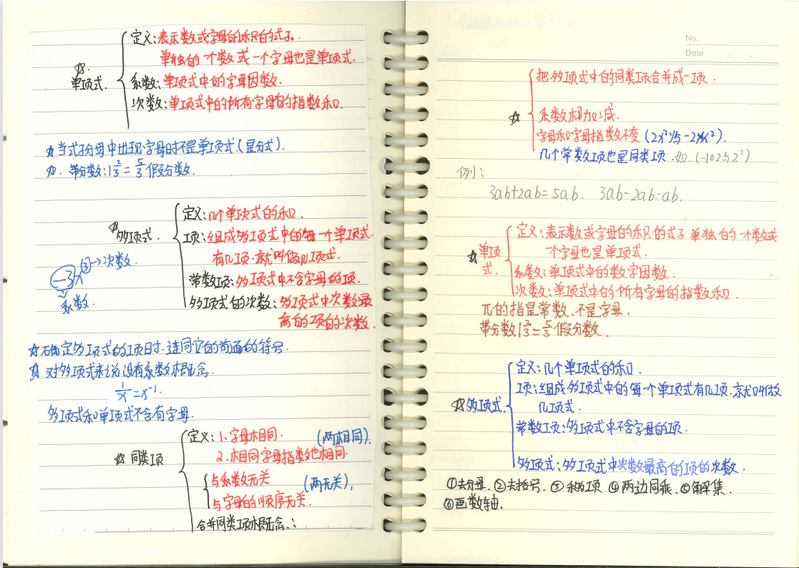 ☆
单项式
定义:表示数或字母的积的式子。
单独的一个数或一个字母也是单项式.
系数:单项式中的字母因数.
次数:单项式中的所有字母的指数和.
☆当式子分母中出现字母时不是单项式(是分式).
☆. 带分数:1⅔=5/3假分数.
☆多项式.
定义:几个单项式的和.
项:组成多项式中的每一个单项式.
有几项.就叫做几项式.
常数项:多项式中不含字母的项.
多项式的次数:多项式中次数最
高的项的次数.
-3x② → 次数.
系数.
☆确定多项式的项时.连同它的前面的符号.
☆对多项式来说没有系数概念.
1/x=x⁻¹.
多项式和单项式不含有字母.
☆同类项
定义:1.字母相同.
(两相同).
2.相同字母指数也相同.
与系数无关
(两无关),
与字母的顺序无关.
合并同类项概念.:
No.
Date
☆
把多项式中的同类项合并成一项.
系数相加减.
字母和字母指数不变
几个常数项也是同类项.
例:
3ab+2ab=5ab. 3ab-2ab=ab.
☆单项式.
定义:表示数或字母的积的式子.单独的一个数或
一个字母也是单项式.
系数:单项式中的数字因数.
次数:单项式中的所有字母的指数和.
π的指是常数.不是字母.
带分数1⅔=5/3假分数.
☆多项式
定义:几个单项式的和.
项:组成多项式中的每一个单项式有几项.就叫做
几项式.
常数项:多项式中不含字母的项.
多项式:多项式中次数最高的项的次数.
①去分母. ②去括号. ③移项 ④两边同乘. ⑤解集.
⑥画数轴.